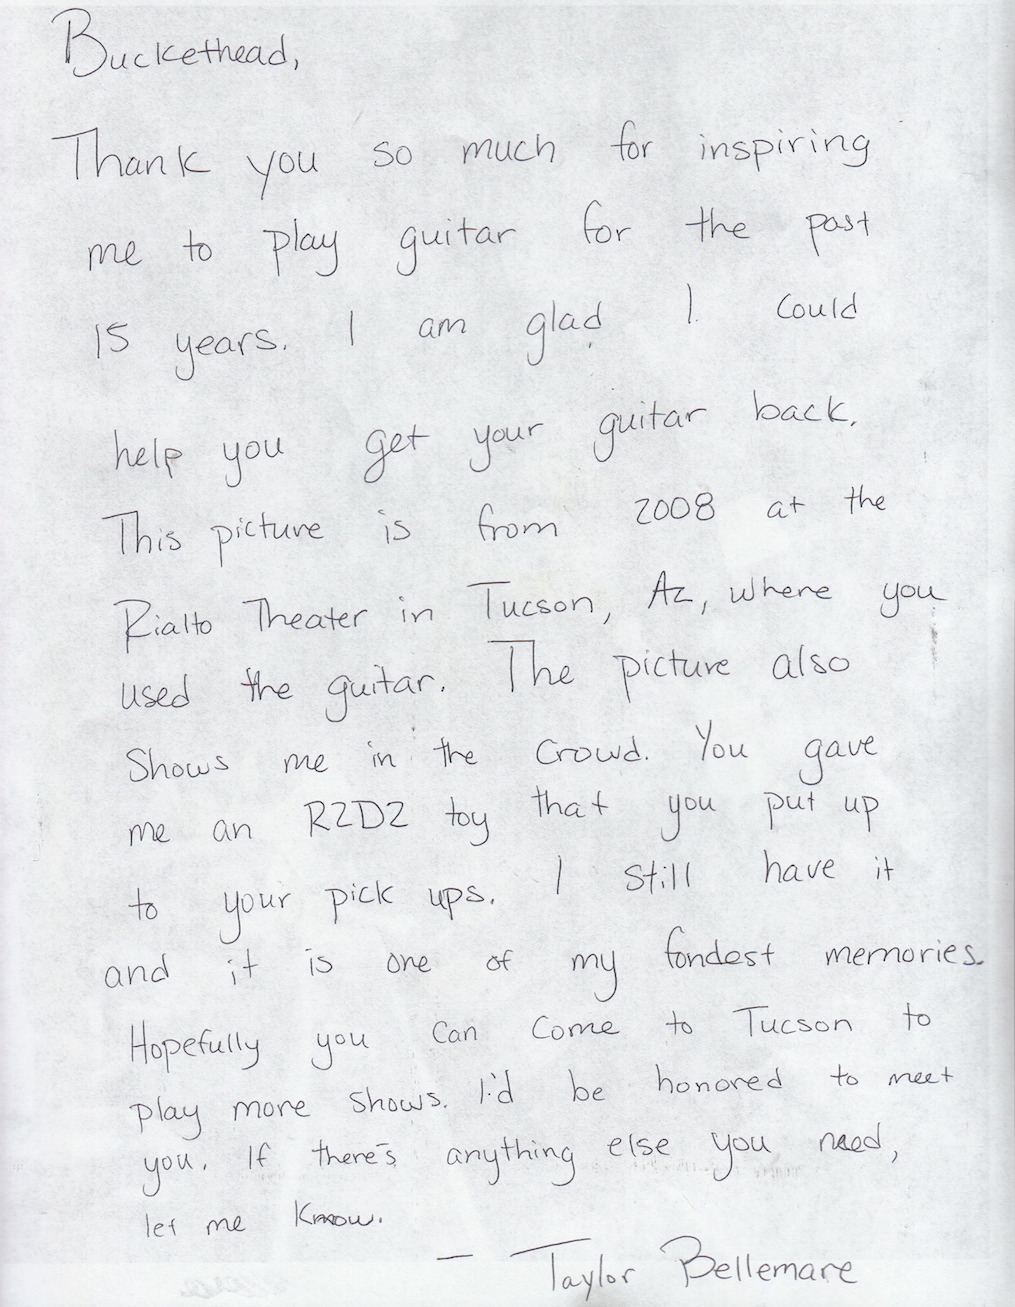 Buckethead,
Thank you so much for inspiring
me to play guitar for the past
15 years. I am glad I could
help you get your guitar back.
This picture is from 2008 at the
Rialto Theater in Tucson, Az, where you
used the guitar. The picture also
Shows me in the crowd. You gave
me an R2D2 toy that you put up
to your pick ups. I still have it
and it is one of my fondest memories.
Hopefully you can come to Tucson to
play more shows. I'd be honored to meet
you. If there's anything else you need,
let me know.
- Taylor Bellemare